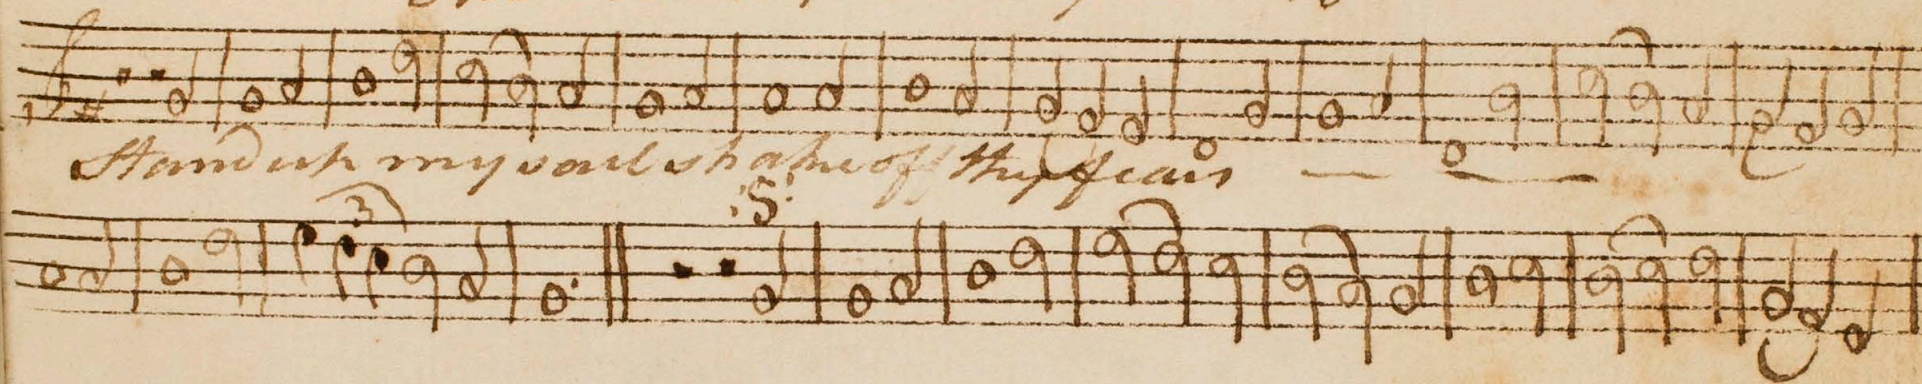 Stand up my soul shake off thy fears
3
:S: